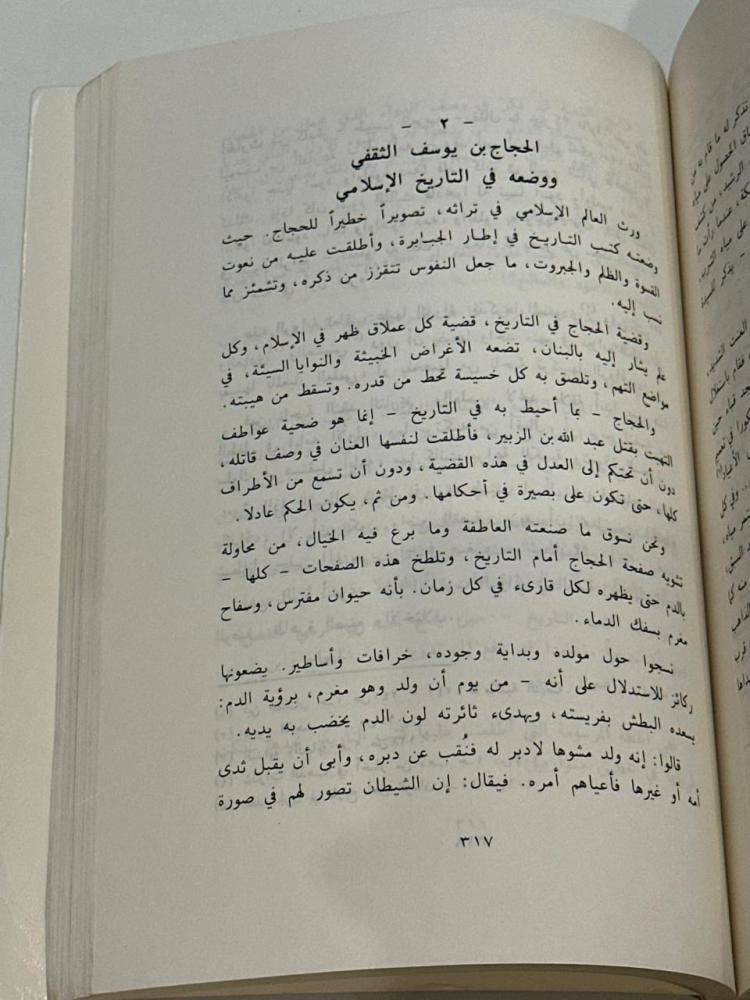 - ٢ -
الحجاج بن يوسف الثقفي
ووضعه في التاريخ الإسلامي
ورث العالم الإسلامي في تراثه، تصويراً خطيراً للحجاج. حيث
وضعته كتب التاريخ في إطار الجبابرة، وأطلقت عليه من نعوت
القسوة والظلم والجبروت، ما جعل النفوس تتقزز من ذكره، وتشمئز مما
نسب إليه.
وقضية الحجاج في التاريخ، قضية كل عملاق ظهر في الإسلام، وكل
علم يشار إليه بالبنان، تضعه الأغراض الخبيثة والنوايا السيئة، في
مواضع التهم، وتلصق به كل خسيسة تحط من قدره. وتسقط من هيبته.
والحجاج - بما أحيط به في التاريخ - إنما هو ضحية عواطف
التهبت بقتل عبد الله بن الزبير، فأطلقت لنفسها العنان في وصف قاتله،
دون أن تحتكم إلى العدل في هذه القضية، ودون أن تسمع من الأطراف
كلها، حتى تكون على بصيرة في أحكامها. ومن ثم، يكون الحكم عادلا.
ونحن نسوق ما صنعته العاطفة وما برع فيه الخيال، من محاولة
تشويه صفحة الحجاج أمام التاريخ، وتلطخ هذه الصفحات - كلها -
بالدم حتى يظهره لكل قارىء في كل زمان. بأنه حيوان مفترس، وسفاح
مغرم بسفك الدماء.
نسجوا حول مولده وبداية وجوده، خرافات وأساطير. يضعونها
ركائز للاستدلال على أنه - من يوم أن ولد وهو مغرم، برؤية الدم:
يسعده البطش بفريسته، ويهدىء ثائرته لون الدم يخضب به يديه.
قالوا: إنه ولد مشوها لادبر له فنُقب عن دبره، وأبى أن يقبل ثدى
أمه أو غيرها فأعياهم أمره. فيقال: إن الشيطان تصور لهم في صورة
٣١٧